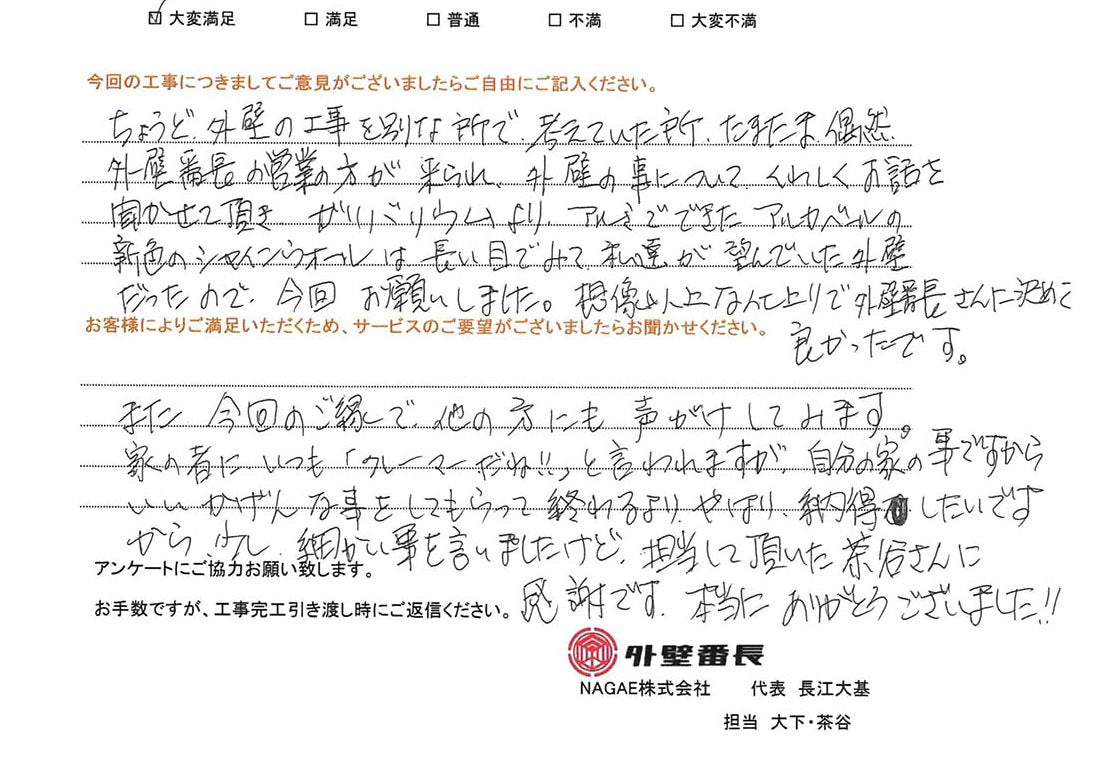 ☑ 大変満足 ☐ 満足 ☐ 普通 ☐ 不満 ☐ 大変不満
今回の工事につきましてご意見がございましたらご自由にご記入ください。
ちょうど、外壁の工事を別な所で、考えていた所、たまたま偶然
外壁番長の営業の方が来られ、外壁の事について、くわしくお話を
聞かせて頂き、ガリバリウムより、アルミでできたアルカベールの
新色のシャインウオールは長い目でみて私達が望んでいた外壁
だったので、今回お願いしました。想像以上な仕上りで外壁番長さんに決めて
良かったです。
お客様によりご満足いただくため、サービスのご要望がございましたらお聞かせください。
また今回のご縁で、他の方にも声がけしてみます。
家の者にいつも「クレーマーだね!!」と言われますが、自分の家の事ですから
いいかげんな事をしてもらって終わるより、やはり、納得したいです
から、少し、細かい事を言いましたけど、担当して頂いた茶谷さんに
感謝です。本当にありがとうございました!!
アンケートにご協力お願い致します。
お手数ですが、工事完工引き渡し時にご返信ください。
外壁番長
NAGAE株式会社 代表 長江大基
担当 大下・茶谷